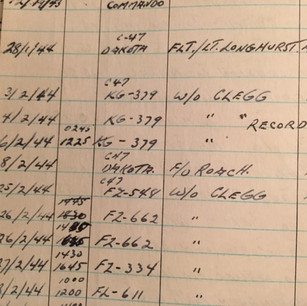 12/43 COMMANDO
C-47
28/1/44 DAKOTA FLT./LT. LONGHURST.
C47
3/2/44 KG-379 W/O CLEGG
4/2/44 KG-379 " " RECORD
0240
6/2/44 1225 KG-379
C47
8/2/44 DAKOTA. F/O ROACH.
C47
25/2/44 FZ-548 W/O CLEGG
26/2/44 FZ-662 "
26/2/44 FZ-662 "
1430
27/2/44 1645 FZ-334 "
1000
/2/44 1200 FL-611 "